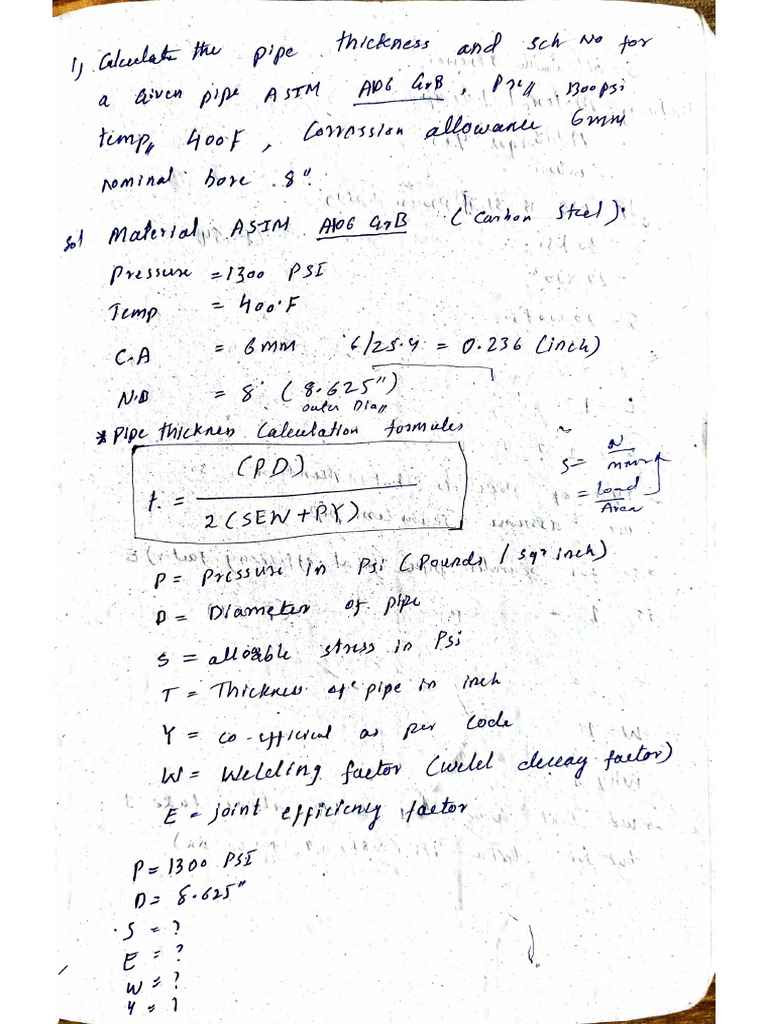 1) Calculate the pipe thickness and sch No for
a Given pipe ASTM A106 GrB, Pre,, 1300psi
temp,, 400°F, Corrossion allowance 6mm
nominal bore 8".
Sol Material ASTM A106 GrB (Carbon Steel).
Pressure = 1300 PSI
Temp = 400°F
C.A = 6mm 6/25.4 = 0.236 (inch)
N.B = 8" (8.625")
outer Dia,,
* Pipe thickness Calculation formules
t = (PD) / 2(SEW+PY)
S = N / mm²
= Load / Area
P = Pressure in Psi (Pounds / sqr inch)
D = Diameter of pipe
S = allowable stress in Psi
T = Thickness of pipe in inch
Y = co-efficient as per Code
W = Welding factor (weld decay factor)
E = joint efficiency factor
P = 1300 PSI
D = 8.625"
S = ?
E = ?
W = ?
Y = ?